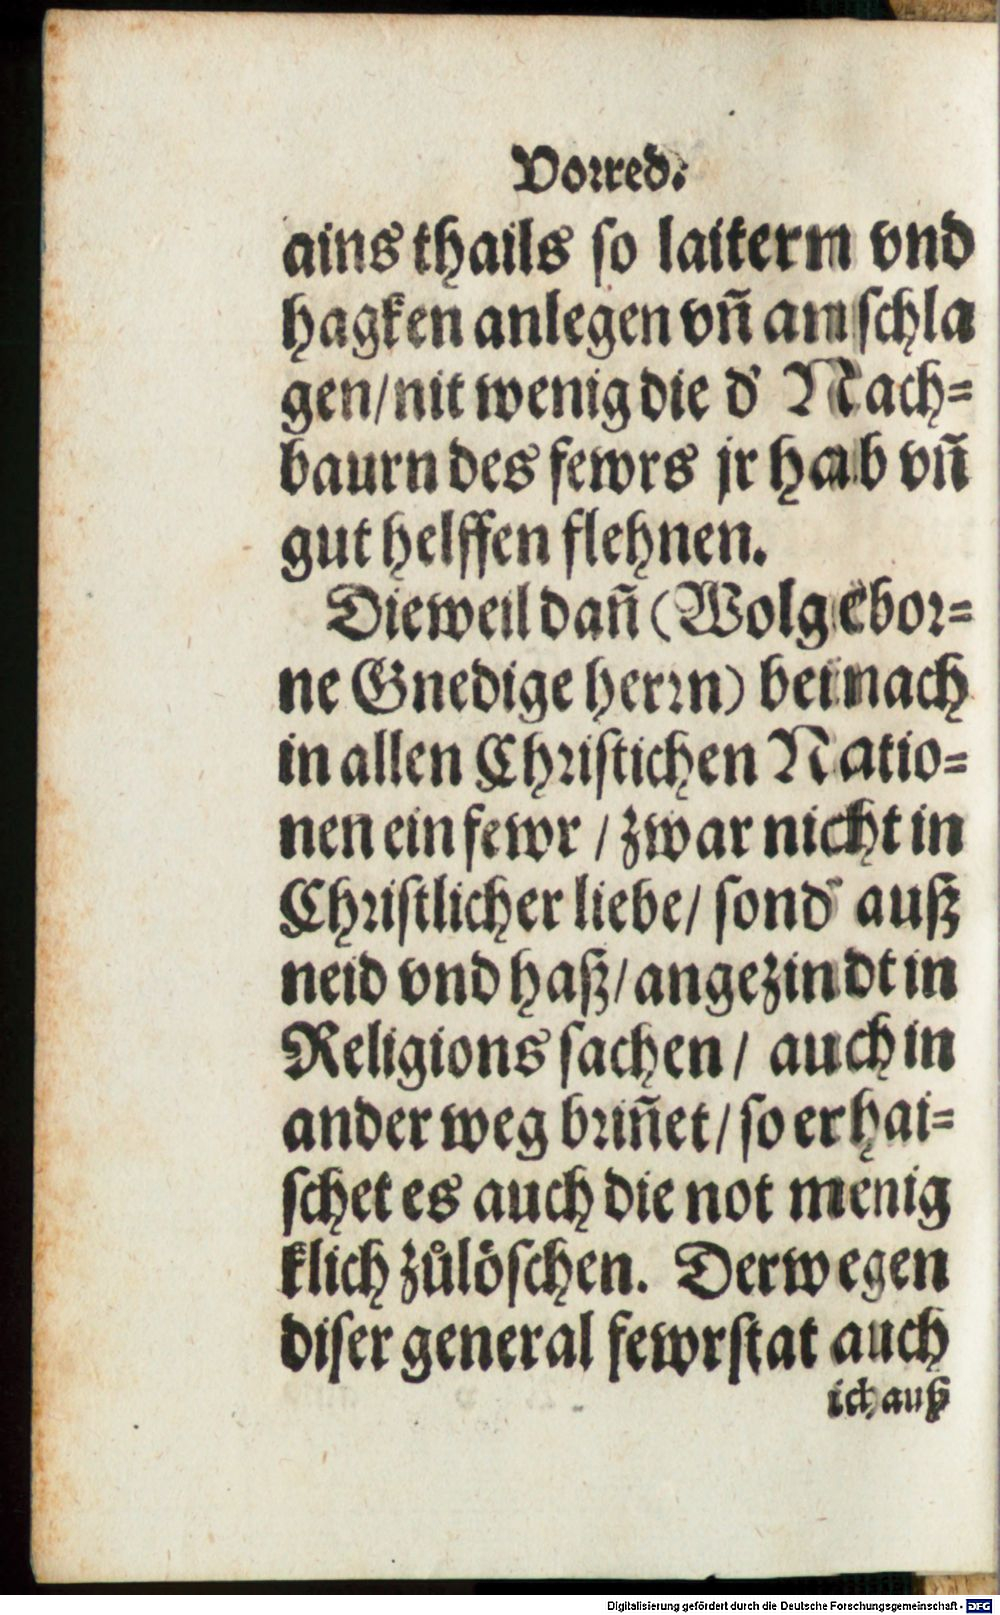 Vorred.
ains thails so laitern vnd
hagken anlegen vñ am schla
gen/nit wenig die d' Nach=
baurn des fewrs jr hab vñ
gut helffen flehnen.
Dieweil dañ (Wolgebor=
ne Gnedige herrn) bei nach
in allen Christichen Natio=
nen ein fewr / zwar nicht in
Christlicher liebe/ sond' auß
neid vnd haß/ angezindt in
Religions sachen/ auch in
ander weg briñet/ so erhai=
schet es auch die not menig
klich zůlöschen. Derwegen
diser general fewrstat auch
ich auß
Digitalisierung gefördert durch die Deutsche Forschungsgemeinschaft - DFG